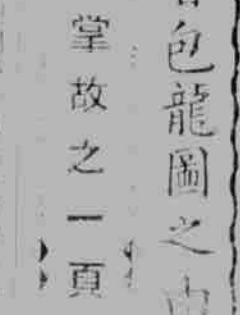 包龍圖之
掌故之一頁